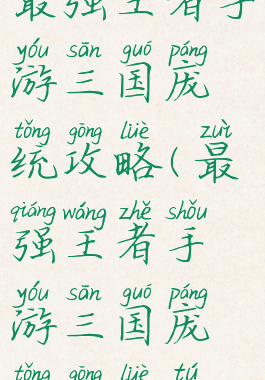 最强王者手
yóu sān guó páng
游三国庞
tǒng gōng lüè zuì
统攻略(最
qiáng wáng zhě shǒu
强王者手
yóu sān guó páng
游三国庞
tǒng gōng lüè tú